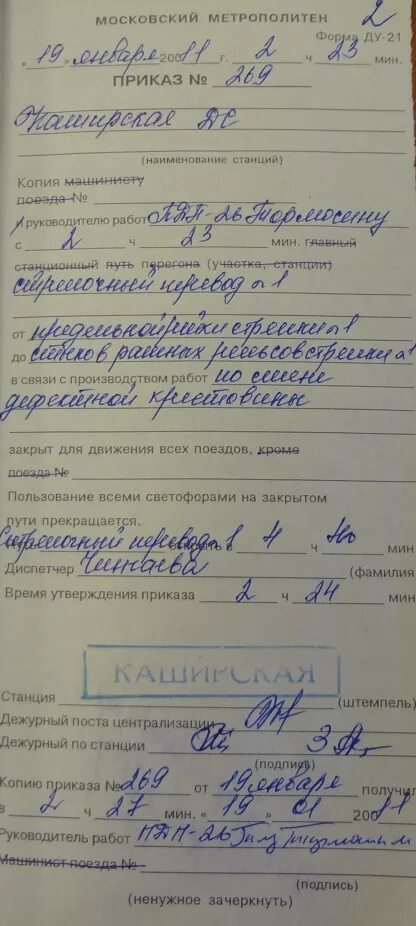 МОСКОВСКИЙ МЕТРОПОЛИТЕН
2
Форма ДУ-21
« 19 » января 200 11 г. 2 ч 23 мин.
ПРИКАЗ № 269
Каширская ДС
(наименование станций)
Копия машинисту
поезда №
и руководителю работ ПДП-26 Тормосину
с 2 ч 23 мин. главный
станционный путь перегона (участка, станции)
стрелочный перевод № 1
от предельной рейки стрелки № 1
до стыков рамных рельсов стрелки № 1
в связи с производством работ по смене
дефектной крестовины
закрыт для движения всех поездов, кроме
поезда №
Пользование всеми светофорами на закрытом
пути прекращается.
Стрелочный перевод № 1 открыть в 4 ч мин
Диспетчер Чинаева (фамилия
Время утверждения приказа 2 ч 24 мин
КАШИРСКАЯ
Станция (штемпель)
Дежурный поста централизации
Дежурный по станции
(подпись)
Копию приказа № 269 от 19 января получил
в 2 ч 27 мин. « 19 » 01 200 11
Руководитель работ ПДП-26
Машинист поезда №
(подпись)
(ненужное зачеркнуть)